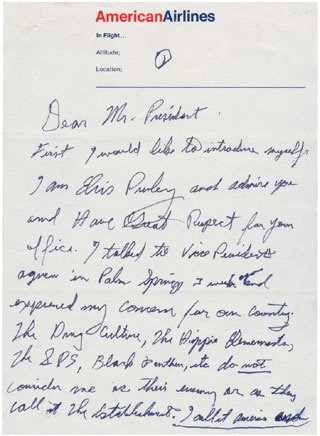 AmericanAirlines
In Flight...
Altitude;
Location;
1
Dear Mr. President.
First I would like to introduce myself.
I am Elvis Presley and admire you
and Have Great Respect for your
office. I talked to Vice President
Agnew in Palm Springs 3 weeks ago and
expressed my concern for our country.
The Drug Culture, The Hippie Elements,
The SDS, Black Panthers, etc do not
consider me as their enemy or as they
call it The Establishment. I call it America and